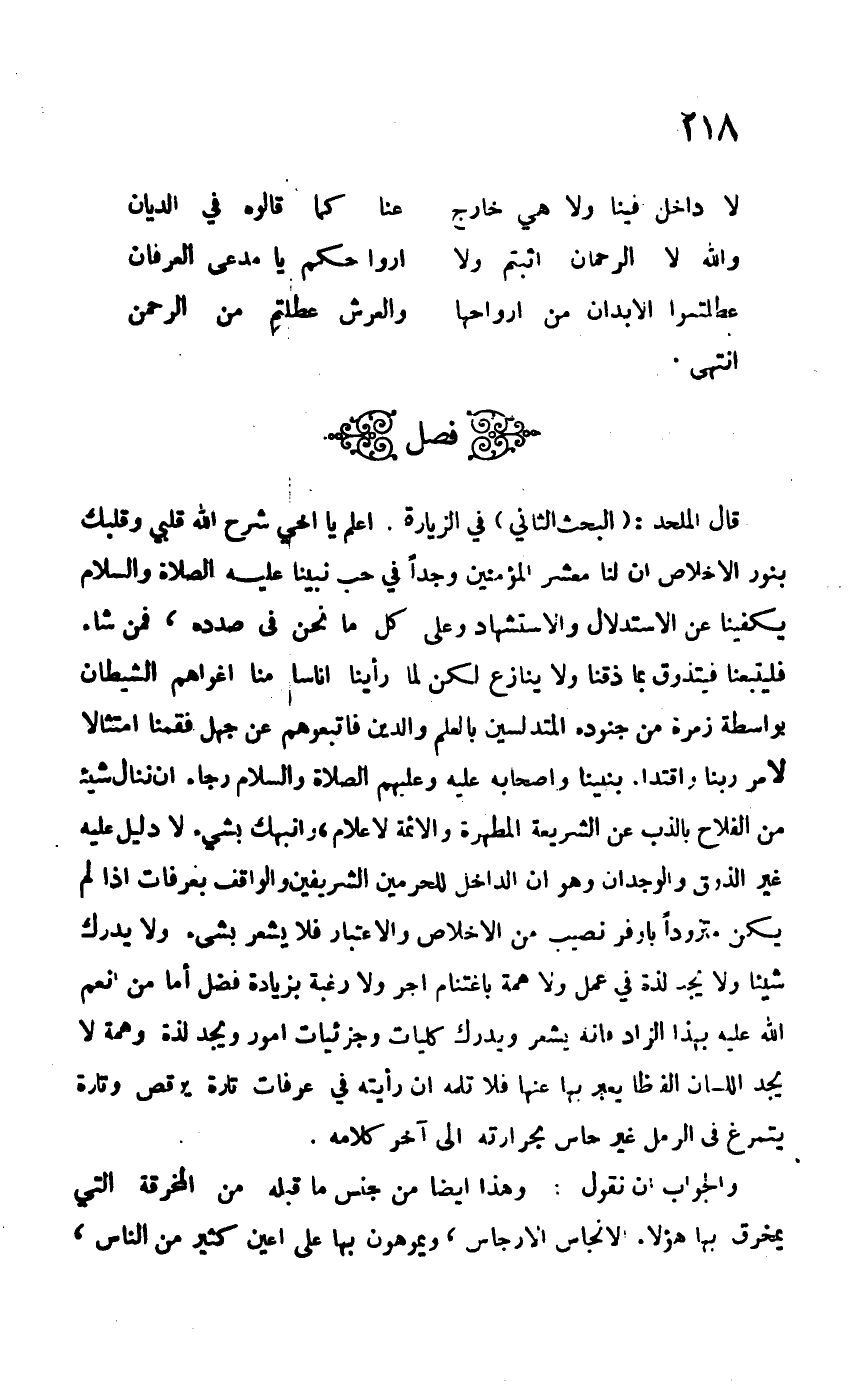 ٢١٨
لا داخل فينا ولا هي خارج عنا كما قالوه في الديان
والله لا الرحمان اثبتم ولا اروا حكم يا مدعى العرفان
عطلتموا الابدان من ارواحها والعرش عطلتم من الرحمن
انتهى .
فصل
قال الملحد : ( البحث الثاني ) في الزيارة . اعلم يا اخي شرح الله قلبي وقلبك
بنور الاخلاص ان لنا معشر المؤمنين وجداً في حب نبينا عليه الصلاة والسلام
يكفينا عن الاستدلال والاستشهاد وعلى كل ما نحن فى صدده ، فمن شاء
فليتبعنا فيتذوق بما ذقنا ولا ينازع لكن لما رأينا اناسا منا اغواهم الشيطان
بواسطة زمرة من جنوده المتدلسين بالعلم والدين فاتبعوهم عن جهل فقمنا امتثالا
لامر ربنا واقتداء بنبينا واصحابه عليه وعليهم الصلاة والسلام رجاء ان ننال شيئ
من الفلاح بالذب عن الشريعة المطهرة والائمة لاعلام ، وانبهك بشيء لا دليل عليه
غير الذوق والوجدان وهو ان الداخل للحرمين الشريفين والواقف بعرفات اذا لم
يكن متزوداً باوفر نصيب من الاخلاص والاعتبار فلا يشعر بشيء ولا يدرك
شيئا ولا يجد لذة في عمل ولا همة باغتنام اجر ولا رغبة بزيادة فضل أما من انعم
الله عليه بهذا الزاد فانه يشعر ويدرك كليات وجزئيات امور ويجد لذة وهمة لا
يجد اللسان الفظا يعبر بها عنها فلا تلمه ان رأيته في عرفات تارة يرقص وتارة
يتمرغ فى الرمل غير حاس بحرارته الى آخر كلامه .
والجواب ان نقول : وهذا ايضا من جنس ما قبله من المخرقة التي
يمخرق بها هؤلاء الانجاس الارجاس ، ويموهون بها على اعين كثير من الناس ،